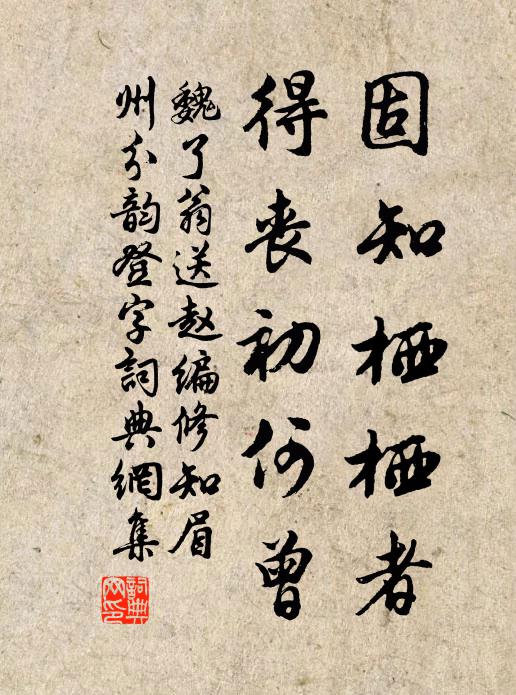 固知栖栖者
得丧初何曾
魏了翁送赵编修知眉
州分韵登字詞典網集
詞典网印